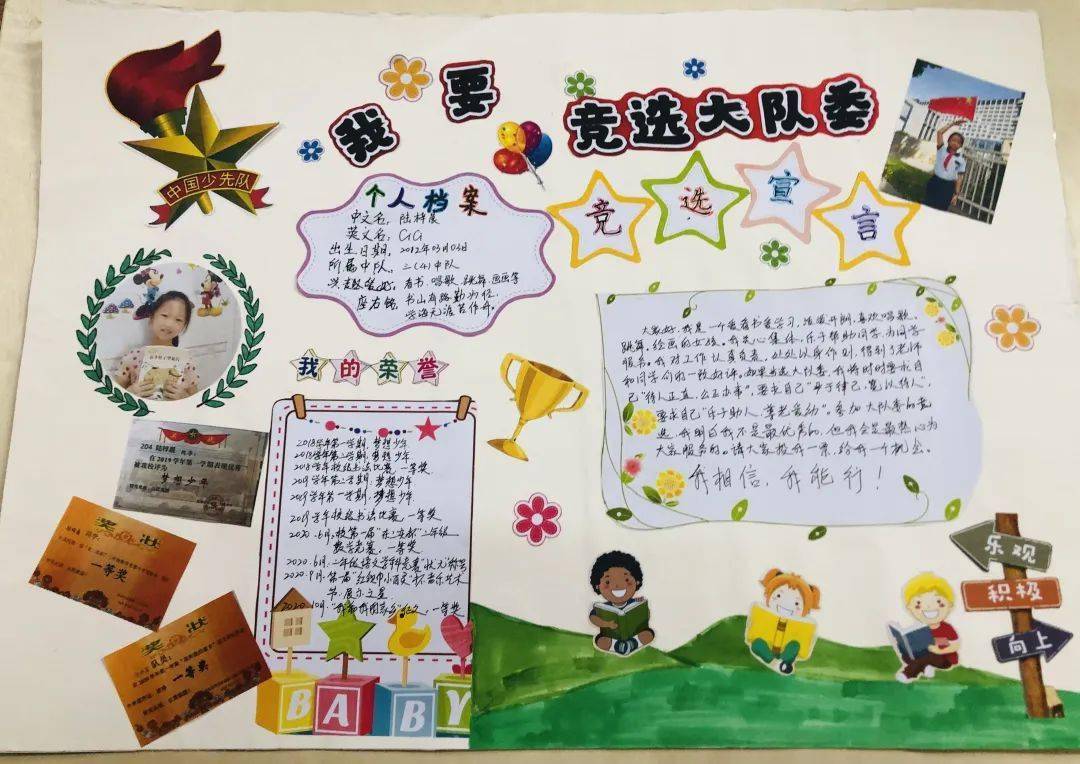 我要
竞选大队委
中国少先队
个人档案
中文名：陆梓晨
英文名：CiCi
出生日期：2012年03月03日
所属中队：三(4)中队
兴趣爱好：看书、唱歌、跳舞、画画等
座右铭：书山有路勤为径，
学海无涯苦作舟。
竞选宣言
大家好，我是一个爱看书爱学习，活泼开朗，喜欢唱歌、
跳舞、绘画的女孩。我关心集体，乐于帮助同学，为同学
服务。我对工作认真负责，处处以身作则，得到了老师
和同学们的一致好评。如果当选大队委，我将时时要求自
己“待人正直、公正办事”，要求自己“严于律己，宽以待人”，
要求自己“乐于助人、尊老爱幼”。参加大队委的竞
选，我明白我不是最优秀的，但我会是最热心为
大家服务的。请大家投我一票，给我一个机会。
我相信，我能行！
我的荣誉
2018学年第一学期，梦想少年
2018学年第二学期，梦想少年
2018学年校级书法比赛，一等奖
2019学年第二学期，梦想少年
2019学年第一学期，梦想少年
2019学年校级书法比赛，一等奖
数学竞赛，一等奖
2020.6月，二年级语文学科竞赛“状元”称号
节，展示之星
一等奖
在2019学年第一学期表现优秀
被我校评为
梦想少年
奖状
一等奖
奖状
一等奖
BABY
乐观
积极
向上